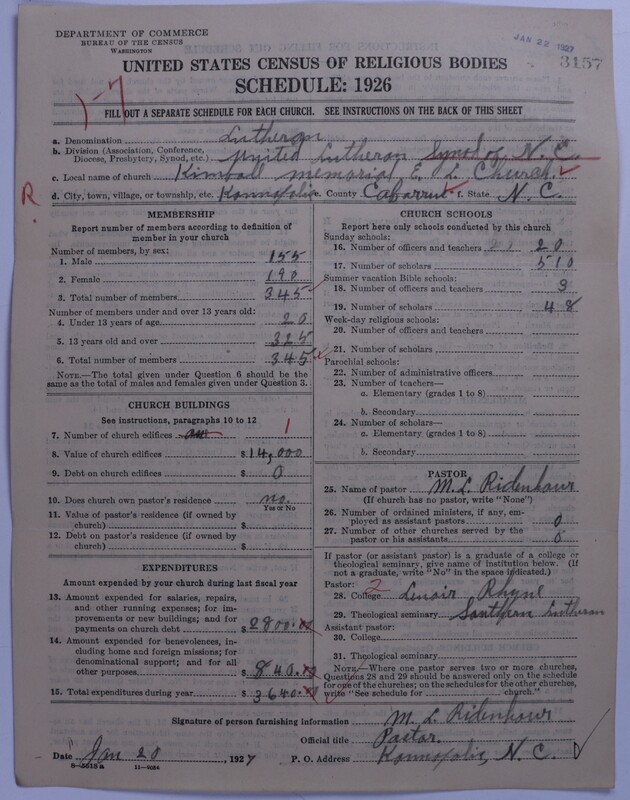 DEPARTMENT OF COMMERCE
BUREAU OF THE CENSUS
WASHINGTON
JAN 22 1927
3157
UNITED STATES CENSUS OF RELIGIOUS BODIES
SCHEDULE: 1926
1-7
FILL OUT A SEPARATE SCHEDULE FOR EACH CHURCH. SEE INSTRUCTIONS ON THE BACK OF THIS SHEET
a. Denomination Lutheran
b. Division (Association, Conference, Diocese, Presbytery, Synod, etc.) United Lutheran Synod of N. C.
c. Local name of church Kimball Memorial E. L. Church
R.
d. City, town, village, or township, etc. Kannapolis e. County Cabarrus f. State N. C.
MEMBERSHIP
Report number of members according to definition of member in your church
Number of members, by sex:
1. Male 155
2. Female 190
3. Total number of members 345
Number of members under and over 13 years old:
4. Under 13 years of age 20
5. 13 years old and over 325
6. Total number of members 345
NOTE.—The total given under Question 6 should be the same as the total of males and females given under Question 3.
CHURCH BUILDINGS
See instructions, paragraphs 10 to 12
7. Number of church edifices 1
8. Value of church edifices $14,000
9. Debt on church edifices $ 0
10. Does church own pastor's residence no.
Yes or No
11. Value of pastor's residence (if owned by church) $
12. Debt on pastor's residence (if owned by church) $
EXPENDITURES
Amount expended by your church during last fiscal year
13. Amount expended for salaries, repairs, and other running expenses; for improvements or new buildings; and for payments on church debt $2800.
14. Amount expended for benevolences, including home and foreign missions; for denominational support; and for all other purposes $840.
15. Total expenditures during year $3640.
CHURCH SCHOOLS
Report here only schools conducted by this church
Sunday schools:
16. Number of officers and teachers 20
17. Number of scholars 510
Summer vacation Bible schools:
18. Number of officers and teachers 3
19. Number of scholars 48
Week-day religious schools:
20. Number of officers and teachers
21. Number of scholars
Parochial schools:
22. Number of administrative officers
23. Number of teachers—
a. Elementary (grades 1 to 8)
b. Secondary
24. Number of scholars—
a. Elementary (grades 1 to 8)
b. Secondary
PASTOR
25. Name of pastor M. L. Ridenhour
(If church has no pastor, write "None")
26. Number of ordained ministers, if any, employed as assistant pastors 0
27. Number of other churches served by the pastor or his assistants 0
If pastor (or assistant pastor) is a graduate of a college or theological seminary, give name of institution below. (If not a graduate, write "No" in the space indicated.)
Pastor: 2
28. College Lenoir Rhyne
29. Theological seminary Southern Lutheran
Assistant pastor:
30. College
31. Theological seminary
NOTE.—Where one pastor serves two or more churches, Questions 28 and 29 should be answered only on the schedule for one of the churches; on the schedules for the other churches, write "See schedule for church."
Signature of person furnishing information M. L. Ridenhour
Official title Pastor.
Date Jan 20, 1927 P. O. Address Kannapolis, N. C.
8—5518 a 11—9064